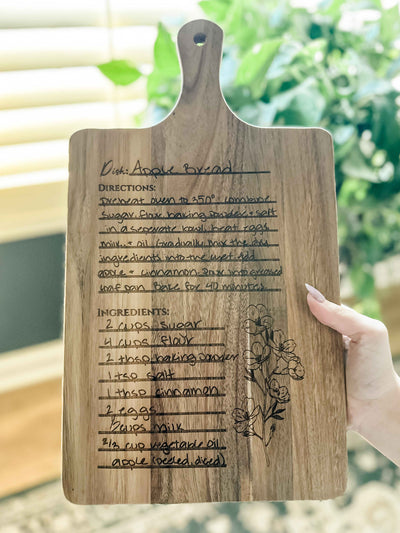 Dish: Apple Bread
DIRECTIONS:
preheat oven to 350° combine
sugar, flour, baking powder + salt
in a seperate bowl, beat eggs
milk, + oil. Gradually mix the dry
ingredients into the wet. Add
apple + cinnamon. Pour into greased
loaf pan. Bake for 40 minutes.
INGREDIENTS:
2 cups sugar
4 cups flour
2 tbsp baking powder
1 tsp salt
1 tbsp cinnamon
2 eggs
1/2 cups milk
2/3 cup vegetable oil
apple (peeled, diced)